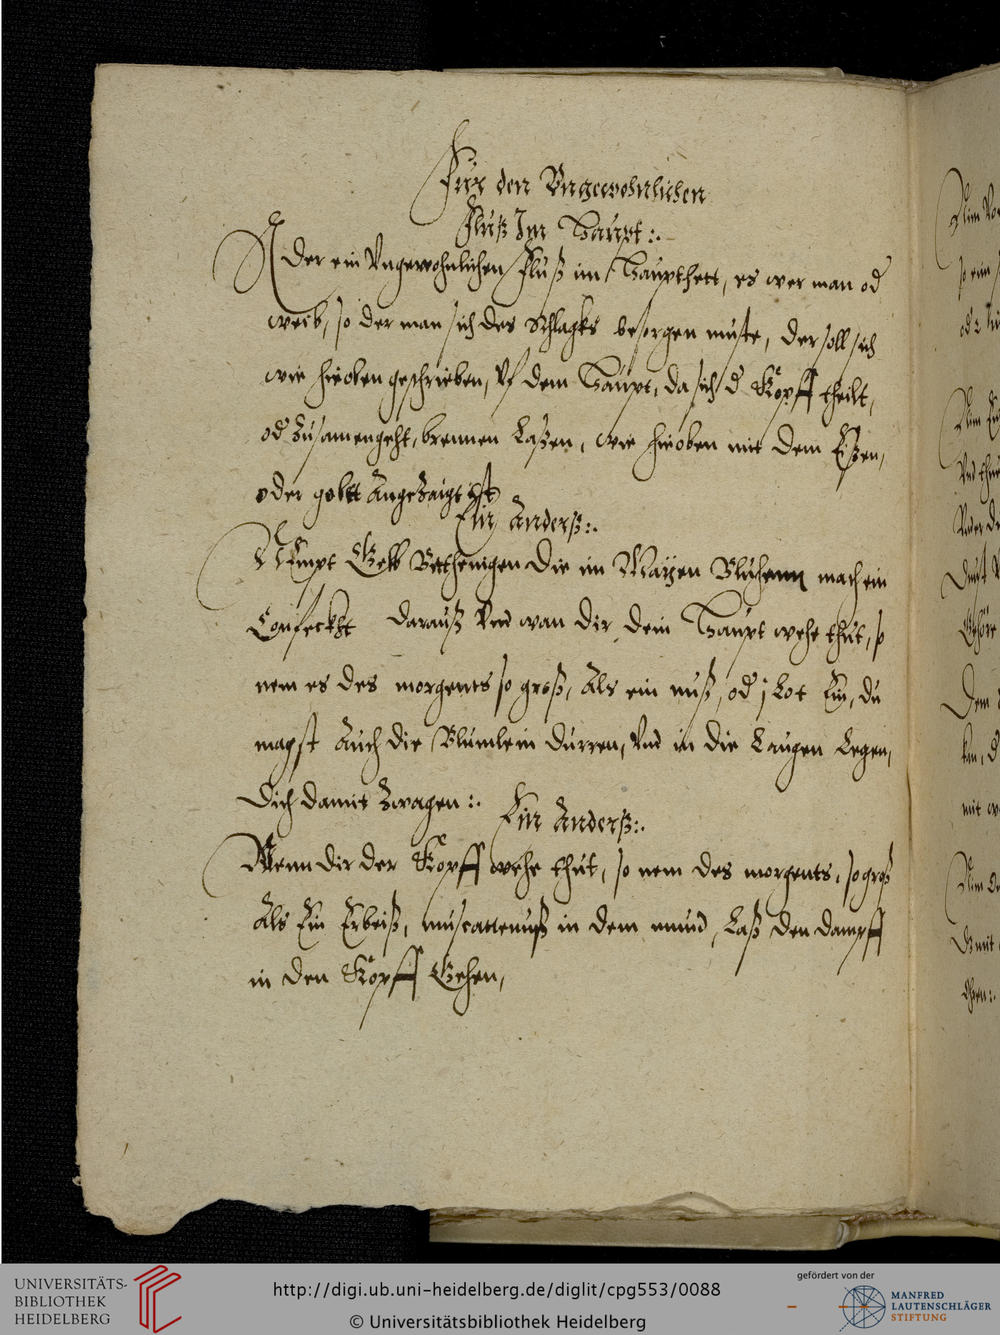 Fur den Vngewohnlichen
Fluß Im Haupt :.
der ein Vngewohnlichen Fluß im Haupt hett, es wer man od
weib, so der man sich des Schlagks besorgen muste, der soll sich
wie hieoben geschrieben, Vf dem Haupt, da sich d Kopff theilt,
od Zusamengeht, brennen Laßen, wie hieoben mit dem Eißen,
oder goltt AngeZaigt ist
Ein Anderß :.
NEmpt Gelb die im Mayen Bluhenn mach ein
Confeckht darauß Vnd wan dir dein Haupt wehe thut, so
nem es des morgents so groß, Als ein nuß, od j Lot Ein, du
magst Auch die Blumlein durren, Vnd in die Laugen Legen,
dich damit Zwagen :.
Ein Anderß :.
Wenn dir der Kopff wehe thut, so nem des morgents, so groß
Als Ein Erbeiß, muscattenuß in dem mund, Laß den dampff
in den Kopff Gehen,
Nim
so ein
Nim
Vnd
Dem
mit
Nim
UNIVERSITÄTS-
BIBLIOTHEK
HEIDELBERG
http://digi.ub.uni-heidelberg.de/diglit/cpg553/0088
© Universitätsbibliothek Heidelberg
gefördert von der
MANFRED
LAUTENSCHLÄGER
STIFTUNG